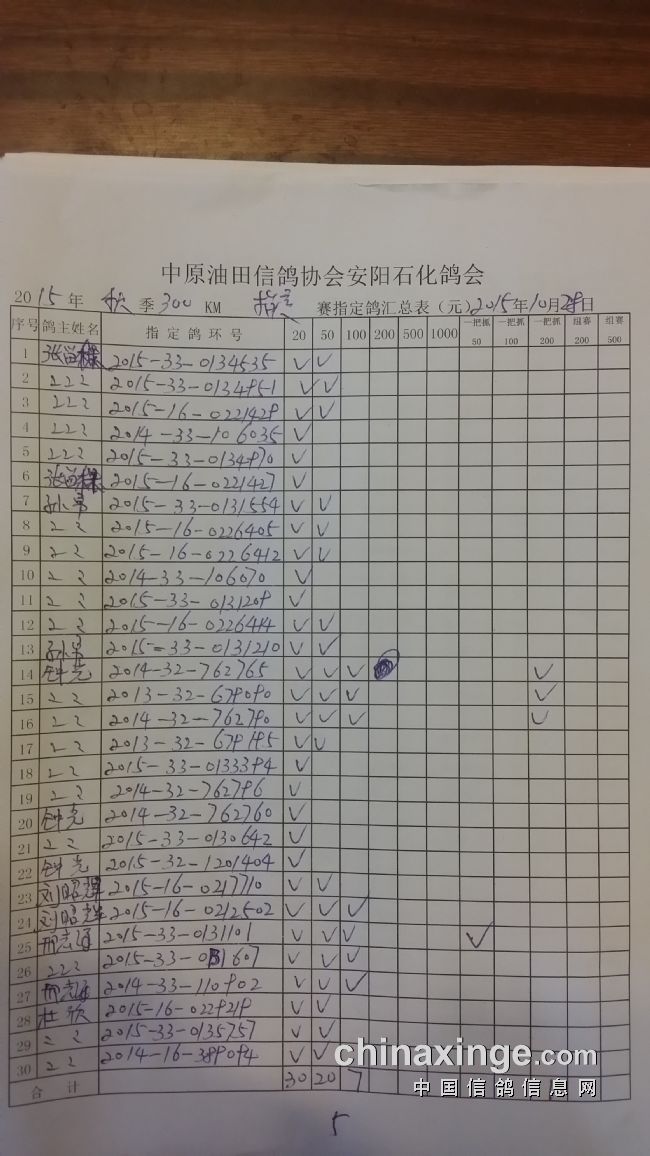 中原油田信鸽协会安阳石化鸽会
2015年 秋 季 300 KM 指定 赛指定鸽汇总表（元）2015年10月28日
序号 鸽主姓名 指定鸽环号 20 50 100 200 500 1000 一把抓50 一把抓100 一把抓200 组赛200 组赛500
1 2015-33-0134535 ✓ ✓
2 〃 2015-33-0134951 ✓ ✓
3 〃 2015-16-0221429 ✓ ✓
4 〃 2014-33-106035 ✓
5 〃 2015-33-0134970 ✓
6 2015-16-0221427 ✓
7 2015-33-0131554 ✓ ✓
8 〃 2015-16-0226405 ✓ ✓
9 〃 2015-16-0226412 ✓ ✓
10 〃 2014-33-106070 ✓
11 〃 2015-33-0131209 ✓
12 〃 2015-16-0226414 ✓ ✓
13 2015-33-0131210 ✓ ✓
14 钟克 2014-32-762765 ✓ ✓ ✓ ✓
15 〃 2013-32-679090 ✓ ✓ ✓ ✓
16 〃 2014-32-762790 ✓ ✓ ✓ ✓
17 〃 2013-32-679195 ✓ ✓
18 〃 2015-33-0133394 ✓
19 〃 2014-32-762796 ✓
20 钟克 2014-32-762760 ✓
21 〃 2015-33-0130642 ✓
22 钟克 2015-32-1201404 ✓
23 刘昭辉 2015-16-0217710 ✓ ✓
24 刘昭辉 2015-16-0212502 ✓ ✓ ✓
25 2015-33-0131101 ✓ ✓ ✓ ✓
26 〃 2015-33-0131607 ✓ ✓ ✓
27 2014-33-110902 ✓ ✓ ✓
28 杜欣 2015-16-0229219 ✓ ✓
29 〃 2015-33-0135757 ✓ ✓
30 〃 2014-16-389094 ✓ ✓
合计 30 20 7
chinaxinge.com
中国信鸽信息网
5